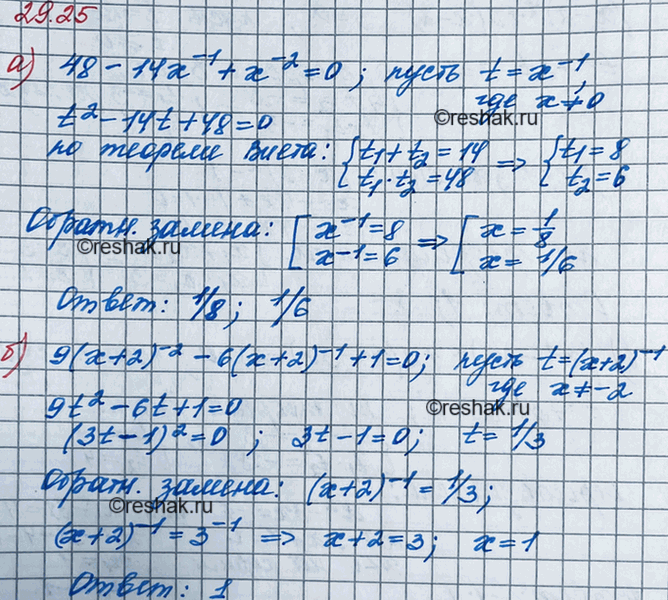 29.25
а) 48 - 14x⁻¹ + x⁻² = 0 ; пусть t = x⁻¹,
где x ≠ 0
t² - 14t + 48 = 0
©reshak.ru
по теореме Виета: { t₁ + t₂ = 14 ⇒ { t₁ = 8
t₁ · t₂ = 48 t₂ = 6
Обратн. замена: [ x⁻¹ = 8 ⇒ [ x = 1/8
x⁻¹ = 6 x = 1/6
©reshak.ru
Ответ: 1/8 ; 1/6
б) 9(x+2)⁻² - 6(x+2)⁻¹ + 1 = 0 ; пусть t = (x+2)⁻¹
где x ≠ -2
9t² - 6t + 1 = 0
©reshak.ru
(3t - 1)² = 0 ; 3t - 1 = 0 ; t = 1/3
Обратн. замена: (x+2)⁻¹ = 1/3 ;
©reshak.ru
(x+2)⁻¹ = 3⁻¹ ⇒ x + 2 = 3 ; x = 1
Ответ: 1